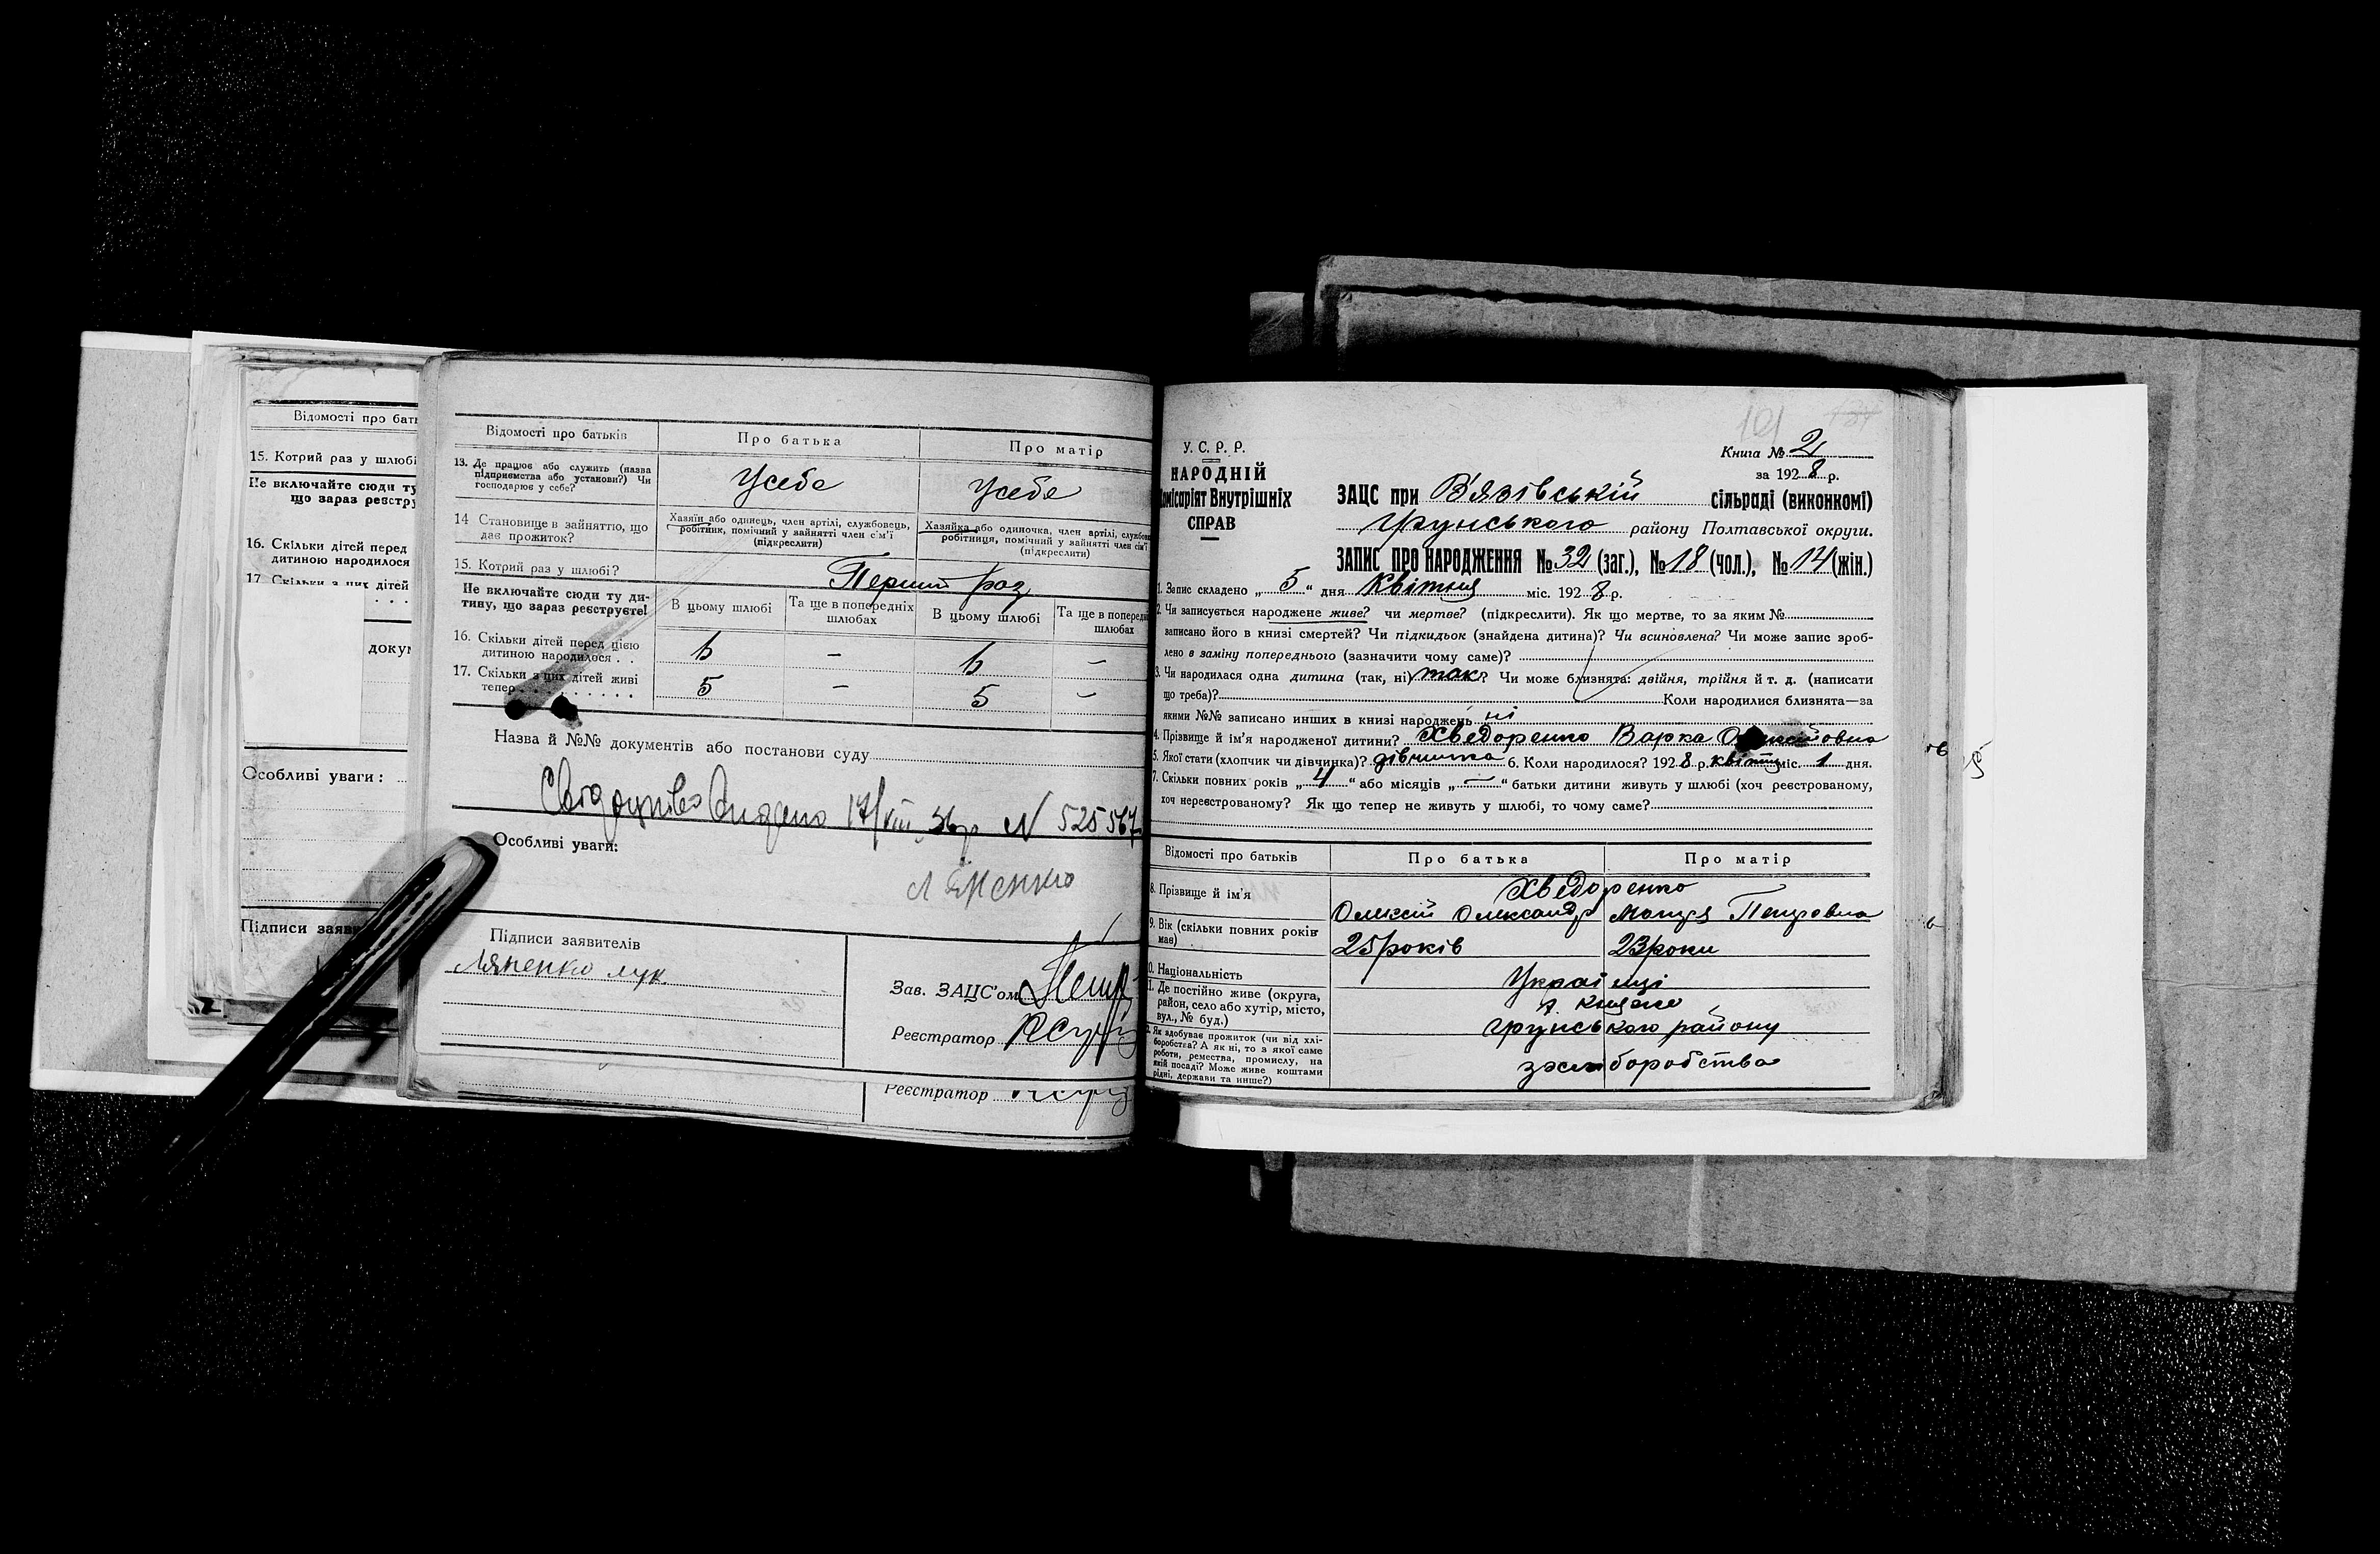 Відомості про бать
15. Котрий раз у шлюбі
Не включайте сюди ту
що зараз реєстру
16. Скільки дітей перед
дитиною народилося
17. Скільки з цих дітей
докум
Особливі уваги:
Підписи заяв
Відомості про батьків
Про батька
Про матір
13. Де працює або служить (назва
підприємства або установи?) Чи
господарює у себе?
Усебе
Усебе
14 Становище в зайняттю, що
дає прожиток?
Хазяїн або одинець, член артілі, службовець,
робітник, помічний у зайнятті член сім'ї
(підкреслити)
Хазяйка або одиночка, член артілі, службов
робітниця, помічний у зайнятті член сім'ї
(підкреслити)
15. Котрий раз у шлюбі?
Перший раз
Не включайте сюди ту ди-
тину, що зараз реєструєте!
В цьому шлюбі
Та ще в попередніх
шлюбах
В цьому шлюбі
Та ще в поперед
шлюбах
16. Скільки дітей перед цією
дитиною народилося . .
–
–
17. Скільки з цих дітей живі
тепер . . . . . . . . . .
5
–
5
–
Назва й №№ документів або постанови суду
N 525567
Особливі уваги:
Підписи заявителів
Зав. ЗАЦС'ом
Реєстратор
Реєстратор
101
У. С. Р. Р.
НАРОДНІЙ
омісаріят Внутрішніх
СПРАВ
Книга № 2
за 1928 р.
ЗАЦС при В'язівській сільраді (виконкомі)
Грунського району Полтавської округи.
ЗАПИС ПРО НАРОДЖЕННЯ № 32 (заг.), № 18 (чол.), № 14 (жін.)
1. Запис складено „ 5 “ дня Квітня міс. 1928 р.
2. Чи записується народжене живе? чи мертве? (підкреслити). Як що мертве, то за яким №
записано його в книзі смертей? Чи підкидьок (знайдена дитина)? Чи всиновлена? Чи може запис зроб-
лено в заміну попереднього (зазначити чому саме)?
3. Чи народилася одна дитина (так, ні) так? Чи може близнята: двійня, трійня й т. д. (написати
що треба)? Коли народилися близнята—за
якими №№ записано инших в книзі народжень ні
4. Прізвище й ім'я народженої дитини? Хведоренко Варка
5. Якої стати (хлопчик чи дівчинка)? дівчинка 6. Коли народилося? 1928 р. квітня міс. 1 дня.
7. Скільки повних років „ 4 “ або місяців „ – “ батьки дитини живуть у шлюбі (хоч реєстрованому,
хоч нереєстрованому? Як що тепер не живуть у шлюбі, то чому саме?
Відомості про батьків
Про батька
Про матір
8. Прізвище й ім'я
Хведоренко
Олексій Олександр
Петровна
9. Вік (скільки повних років
має)
25 років
23 роки
0. Національність
Українці
1. Де постійно живе (округа,
район, село або хутір, місто,
вул., № буд.)
Грунського району
2. Як здобуває прожиток (чи від хлі-
боробства? А як ні, то з якої саме
роботи, ремества, промислу, на
якій посаді? Може живе коштами
рідні, держави та инше?)
з хліборобства